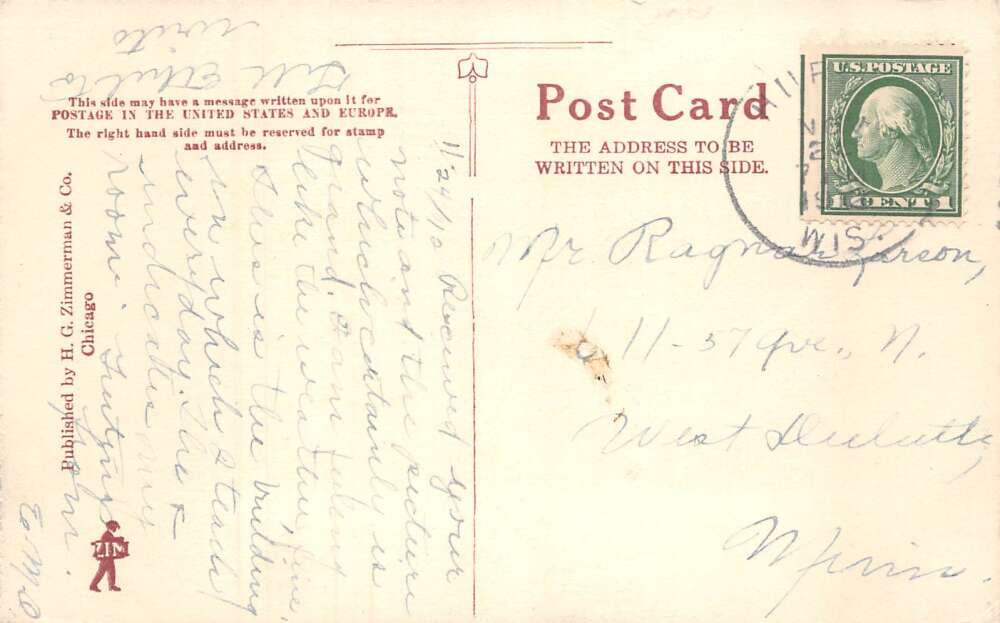 This side may have a message written upon it for
POSTAGE IN THE UNITED STATES AND EUROPE.
The right hand side must be reserved for stamp
and address.
Post Card
THE ADDRESS TO BE
WRITTEN ON THIS SIDE.
U.S. POSTAGE
1 CENT 1
WIS.
Mr Ragnar Larson,
611-57 Ave., N.
West Duluth,
Minn.
11/24/12 Received your
note and the picture
which certainly is
grand. I am feeling
like the weather, fine.
This is the building
in which I teach
everyday. The +
indicates my
room.
Tell Ethel to
write
Published by H. G. Zimmerman & Co.
Chicago
ZIM